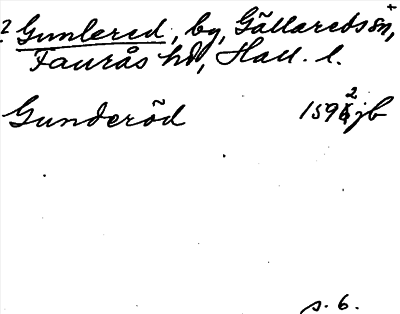 ? Gunlered, by, Gällareds sn,
Faurås hd, Hall. l.
Gunderöd 1592 jb
s. 6.